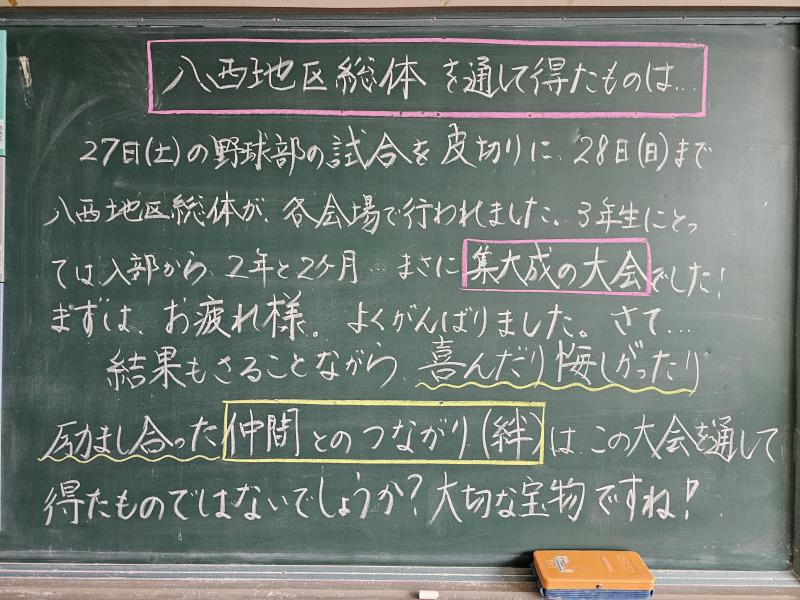 八西地区総体を通して得たものは…
27日(土)の野球部の試合を皮切りに、28日(日)まで
八西地区総体が、各会場で行われました。3年生にとっ
ては入部から、2年と2ヶ月…まさに集大成の大会でした!
まずは、お疲れ様。よくがんばりました。さて…
結果もさることながら、喜んだり悔しがったり
励まし合った仲間とのつながり(絆)は、この大会を通して
得たものではないでしょうか?大切な宝物ですね!